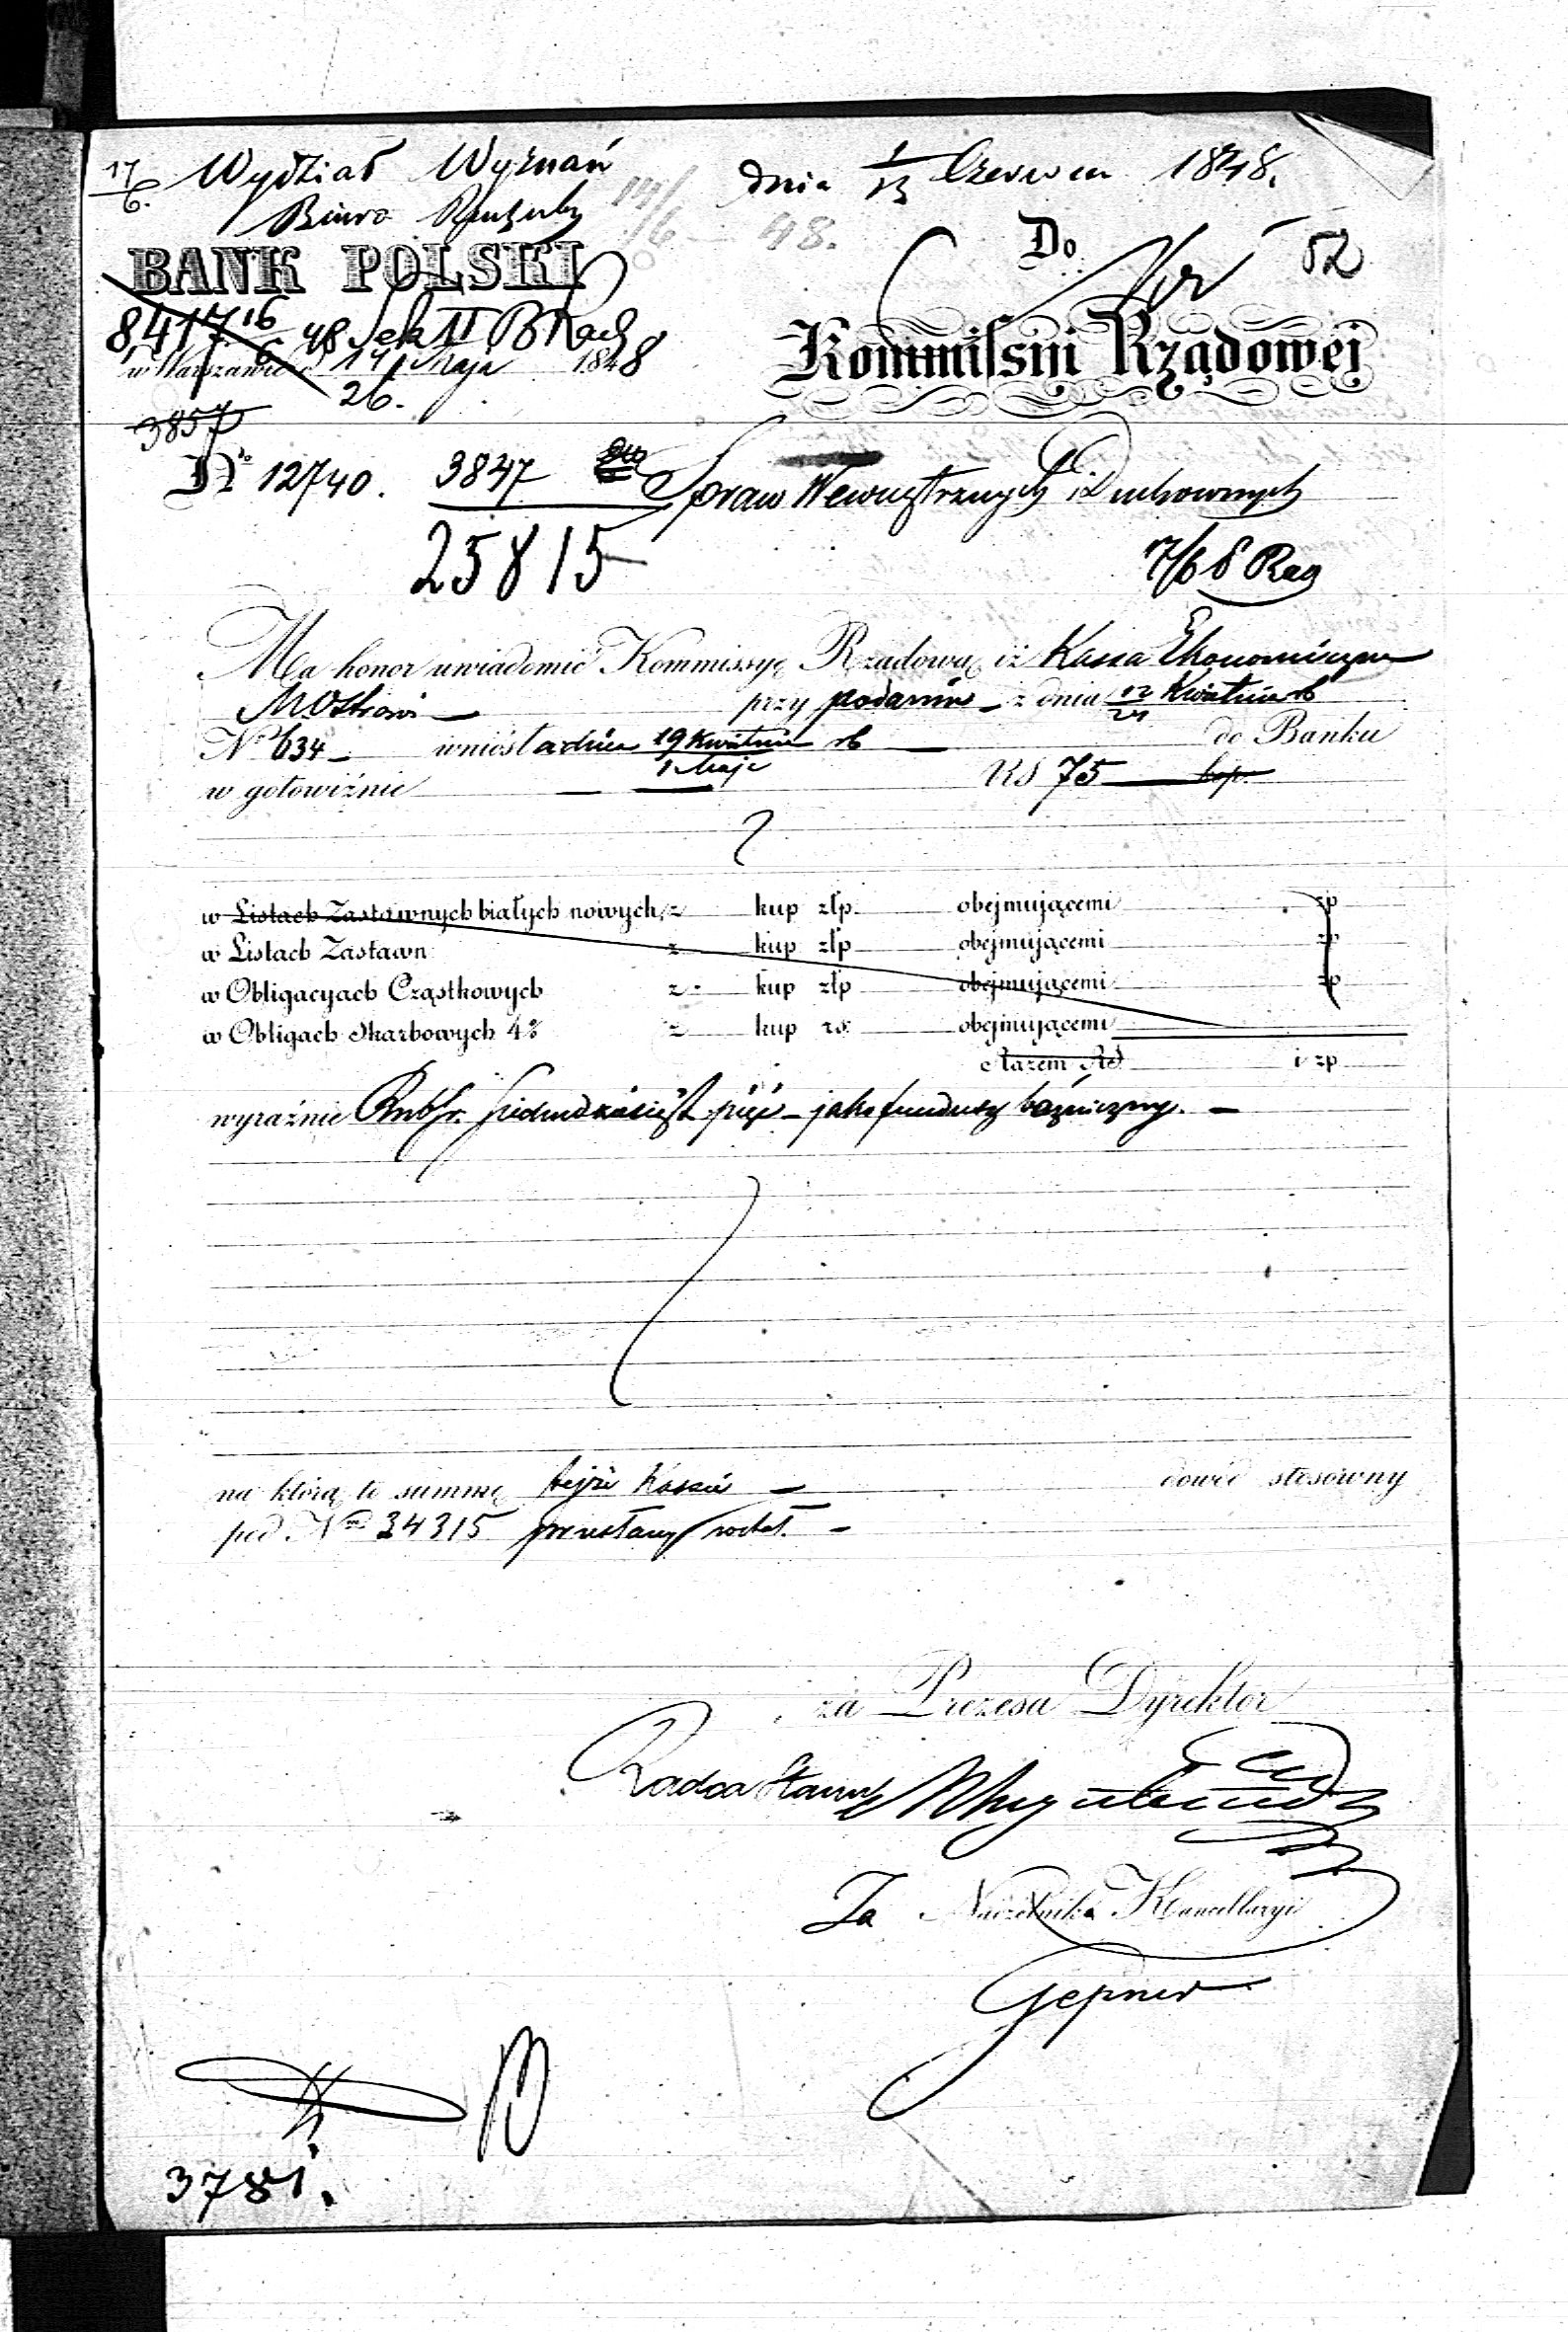 17/6. Wydział Wyznań
dnia 1/13 Czerwca 1848.
Biuro
17/6 48.
BANK POLSKI
Do
52
8417 16/6 48 Sek II B Rach
Kommissyi Rządowéj
w Warszawie d 14/26. Maja 1848
3857
No 12740. 3847
Spraw Wewnętrznych i Duchownych
25815
17/6 8 Rag
Ma honor uwiadomić Kommissyę Rządową iż Kassa Ekonomiczna
M Ostrowi przy podaniu z dnia 12/24 Kwietnia rb
No 634 wniosła dnia 19 Kwietnia/1 Maja rb do Banku
w gotowiźnie RS 75 kop.
w Listach Zastawnych białych nowych, z kup złp. obejmującemi zp
w Listach Zastawn z kup złp obejmującemi zp
w Obligacyach Cząstkowych z kup złp obejmującemi zp
w Obligach Skarbowych 4% z kup rs. obejmującemi
Razem RS i zp
wyraźnie Rub sr. siedmdziesiąt pięć jako fundusz bóżniczny.
na którą to summę tejże Kassie dowód stosowny
pod No 34315 przesłany został.
za Prezesa Dyrektor
Radca Stanu
Za Naczelnika Kancellaryi
Gepner
3781.